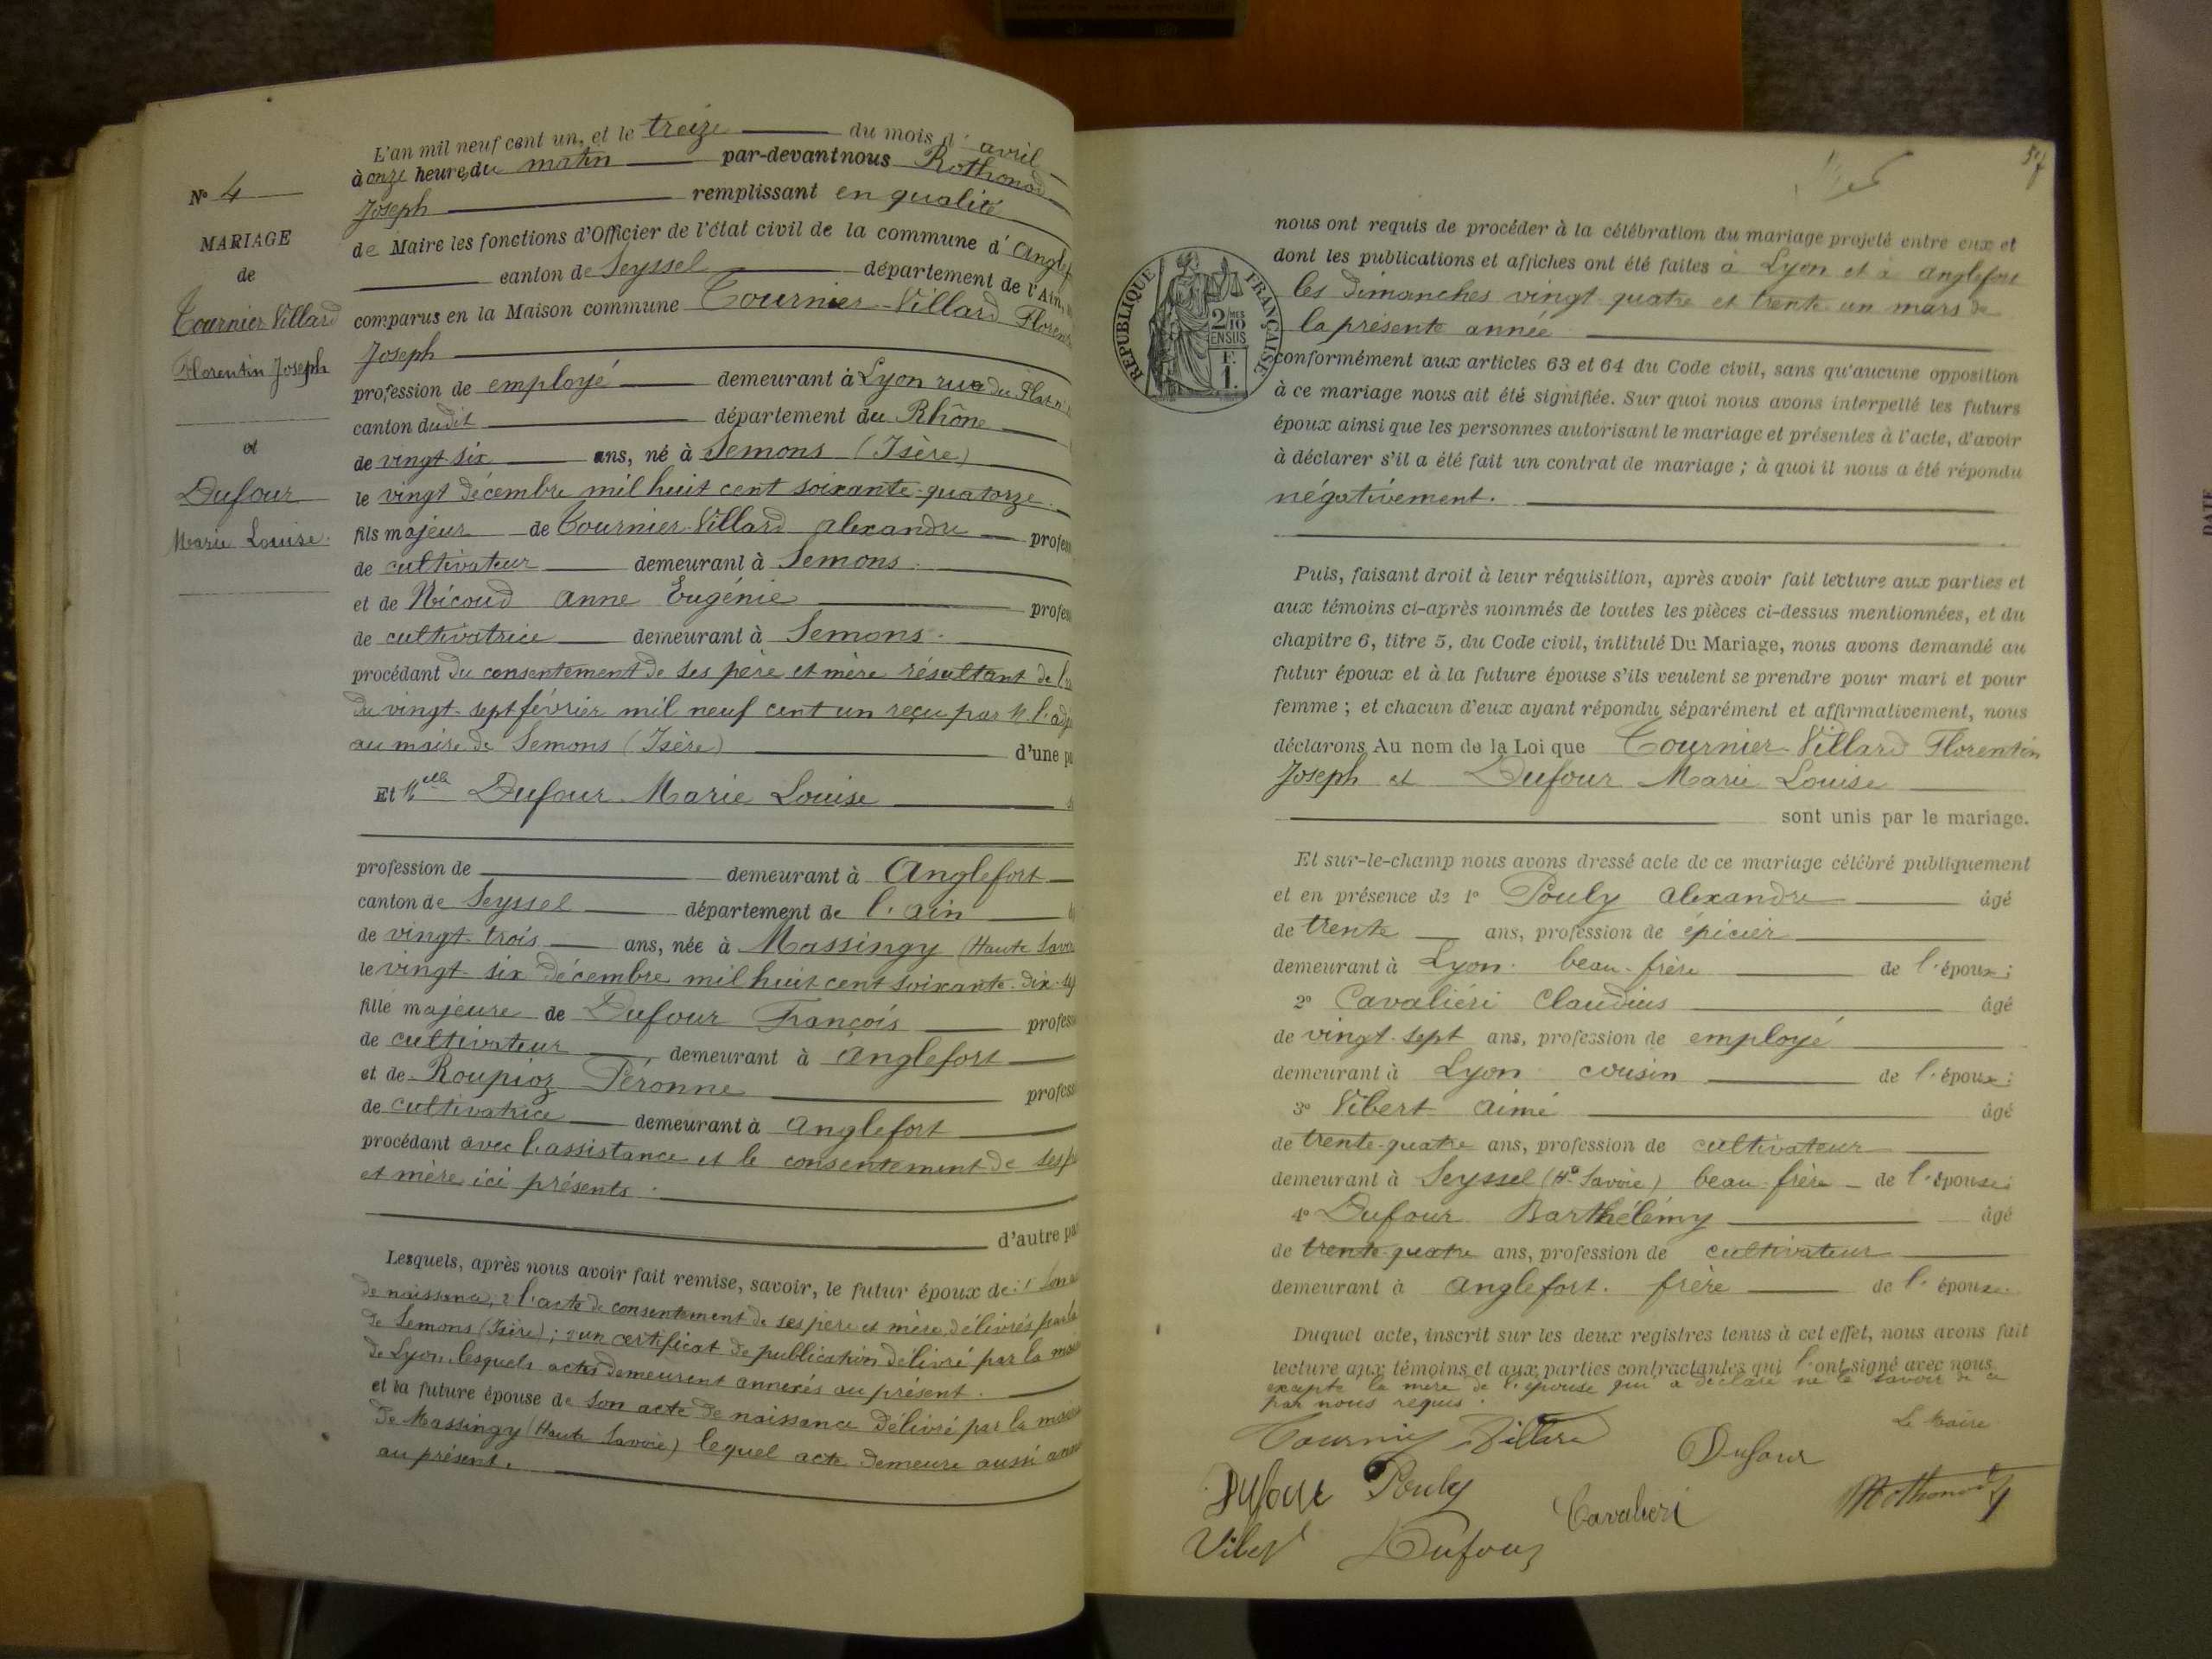 N° 4
MARIAGE
de
Tournier-Villard
Florentin Joseph
et
Dufour
Marie Louise.
L'an mil neuf cent un, et le treize du mois d'avril
à onze heures du matin par-devant nous Rothonod
Joseph remplissant en qualité
de Maire les fonctions d'Officier de l'état civil de la commune d'Anglef
canton de Seyssel département de l'Ain,
comparus en la Maison commune Tournier-Villard Florent
Joseph
profession de employé demeurant à Lyon rue du Plat n°
canton dudit département du Rhône
de vingt six ans, né à Semons (Isère)
le vingt décembre mil huit cent soixante-quatorze
fils majeur de Tournier-Villard alexandre profess
de cultivateur demeurant à Semons.
et de Nicoud anne Eugénie profess
de cultivatrice demeurant à Semons.
procédant du consentement de ses père et mère résultant de l'
du vingt-sept février mil neuf cent un reçu par M. l'adj
au maire de Semons (Isère) d'une pa
Et Mlle Dufour Marie Louise
profession de demeurant à Anglefort
canton de Seyssel département de l'ain
de vingt-trois ans, née à Massingy (Haute Savoie
le vingt-six décembre mil huit cent soixante-dix-sep
fille majeure de Dufour François profess
de cultivateur demeurant à Anglefort
et de Roupioz Péronne profess
de cultivatrice demeurant à anglefort
procédant avec l'assistance et le consentement de ses p
et mère ici présents.
d'autre par
Lesquels, après nous avoir fait remise, savoir, le futur époux de: 1° Son
de naissance; 2° l'acte de consentement de ses père et mère, délivrés par la
de Semons (Isère); 3° un certificat de publication délivré par la mairie
de Lyon, lesquels actes demeurent annexés au présent.
et la future épouse de Son acte de naissance délivré par la mairie
de Massingy (Haute Savoie) lequel acte demeure aussi
au présent.
57
nous ont requis de procéder à la célébration du mariage projeté entre eux et
dont les publications et affiches ont été faites à Lyon et à anglefort
les dimanches vingt-quatre et trente-un mars de
la présente année
RÉPUBLIQUE FRANÇAISE
2/10MES
EN SUS
F.
1.
conformément aux articles 63 et 64 du Code civil, sans qu'aucune opposition
à ce mariage nous ait été signifiée. Sur quoi nous avons interpellé les futurs
époux ainsi que les personnes autorisant le mariage et présentes à l'acte, d'avoir
à déclarer s'il a été fait un contrat de mariage ; à quoi il nous a été répondu
négativement.
Puis, faisant droit à leur réquisition, après avoir fait lecture aux parties et
aux témoins ci-après nommés de toutes les pièces ci-dessus mentionnées, et du
chapitre 6, titre 5, du Code civil, intitulé Du Mariage, nous avons demandé au
futur époux et à la future épouse s'ils veulent se prendre pour mari et pour
femme ; et chacun d'eux ayant répondu séparément et affirmativement, nous
déclarons Au nom de la Loi que Tournier-Villard Florentin
Joseph et Dufour Marie Louise
sont unis par le mariage.
Et sur-le-champ nous avons dressé acte de ce mariage célébré publiquement
et en présence de 1° Pouly alexandre âgé
de trente ans, profession de épicier
demeurant à Lyon. beau-frère de l'époux;
2° Cavaliéri Claudius âgé
de vingt-sept ans, profession de employé
demeurant à Lyon cousin de l'époux;
3° Vibert aimé âgé
de trente-quatre ans, profession de cultivateur
demeurant à Seyssel (Hte Savoie) beau-frère de l'épouse;
4° Dufour Barthélémy âgé
de trente-quatre ans, profession de cultivateur
demeurant à anglefort. frère de l'épouse.
Duquel acte, inscrit sur les deux registres tenus à cet effet, nous avons fait
lecture aux témoins et aux parties contractantes qui l'ont signé avec nous
excepté la mère de l'épouse qui a déclaré ne le savoir de ce
par nous requis.
Le Maire
Tournier Villard
Dufour
Dufour Pouly
Cavalieri
Rothonod J
Vibert
Dufour
DATE